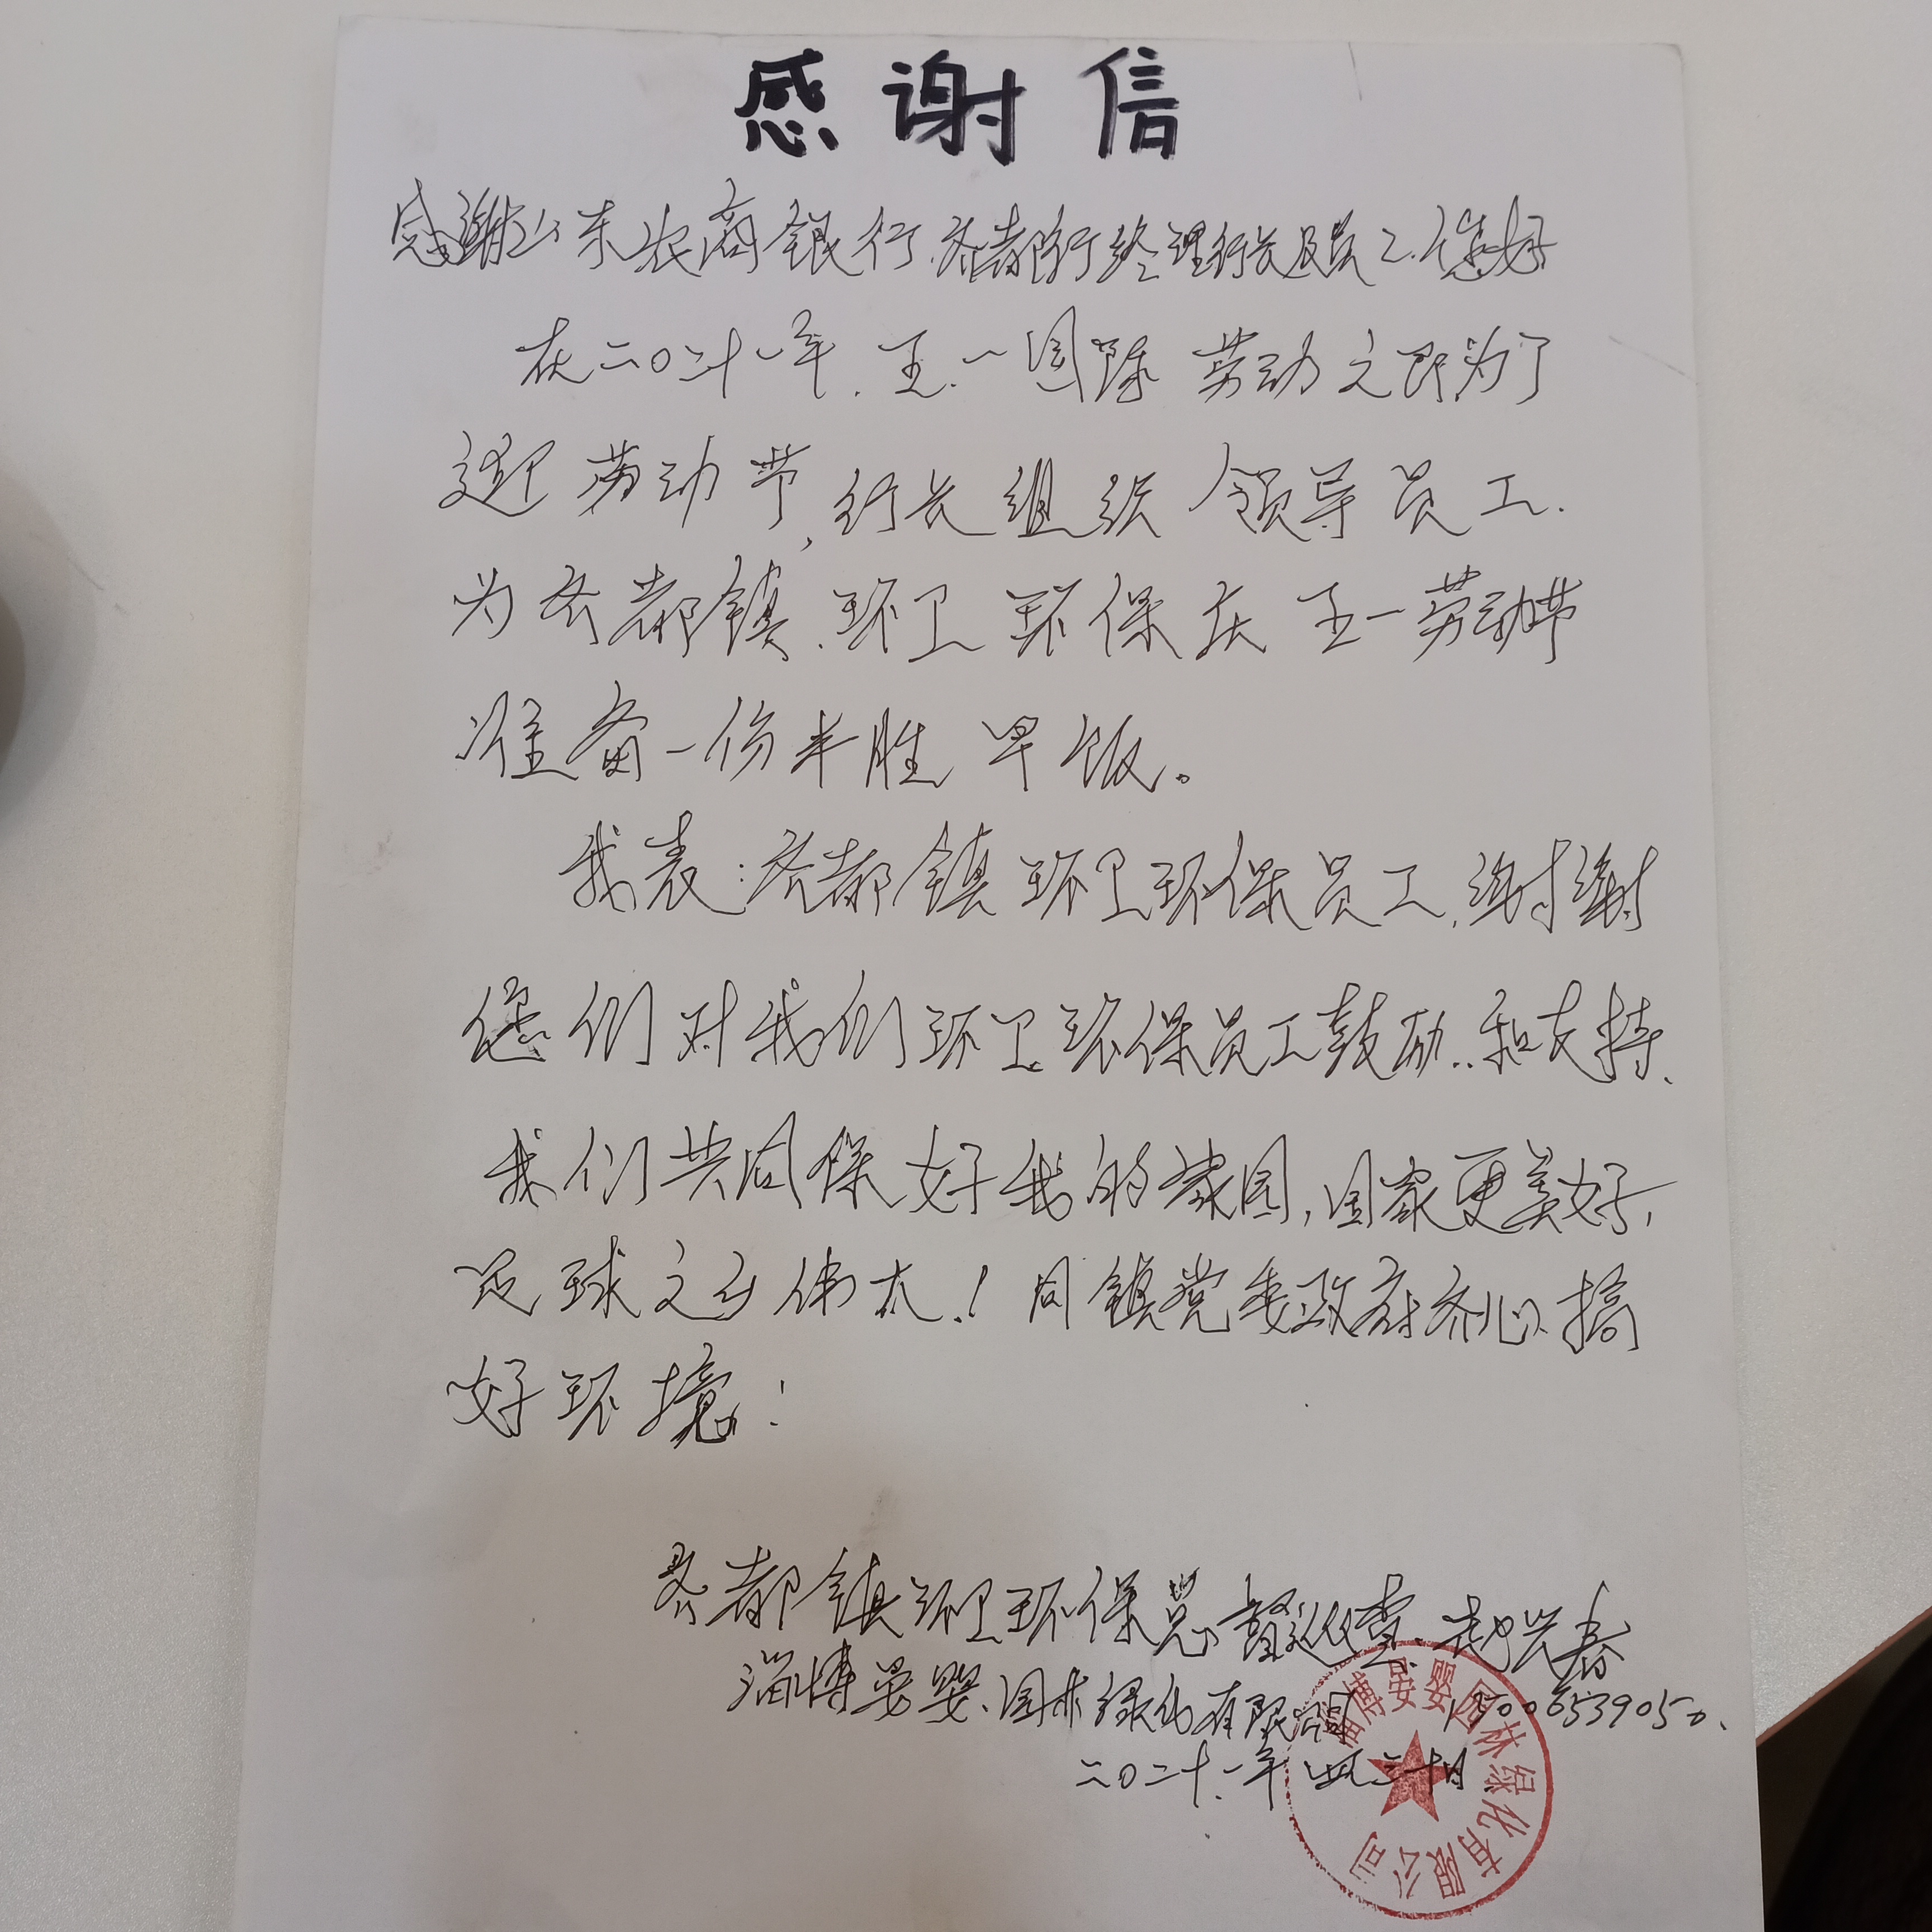 感谢信
感谢山东农商银行.齐都行经理行长及员工.您好
在二〇二十一年.五.一国际劳动之即为了
迎劳动节,行长组织领导员工.
为齐都镇.环卫环保在五一劳动节
准备一份丰胜早饭。
我表:齐都镇环卫环保员工.谢谢
您们对我们环卫环保员工鼓励..和支持.
我们共同保好我的家园,国家更美好,
足球之乡伟大!同镇党委政府齐心搞
好环境:
齐都镇环卫环保总督 赵兴春
淄博晏婴.园林绿化有限公司 15006539050.
二〇二十一年四 三十日
淄博晏婴园林绿化有限公司